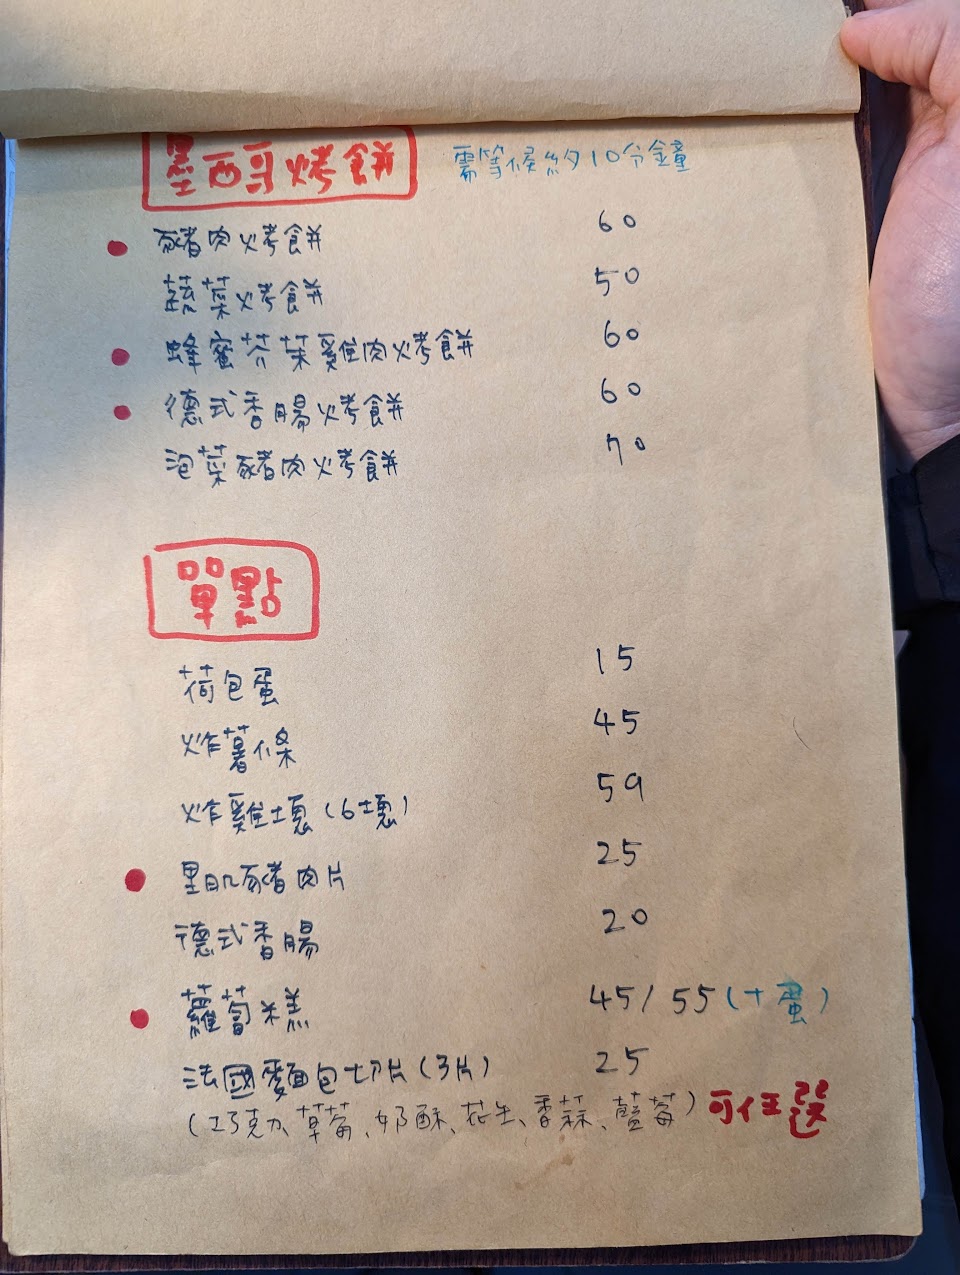 墨西哥烤餅 需等候約10分鐘
豬肉烤餅 60
蔬菜烤餅 50
蜂蜜芥茉雞肉烤餅 60
德式香腸烤餅 60
泡菜豬肉烤餅 70
單點
荷包蛋 15
炸薯條 45
炸雞塊(6塊) 59
里肌豬肉片 25
德式香腸 20
蘿蔔糕 45/55(+蛋)
法國麵包切片(3片) 25
(巧克力、草莓、奶酥、花生、香蒜、藍莓)可任選